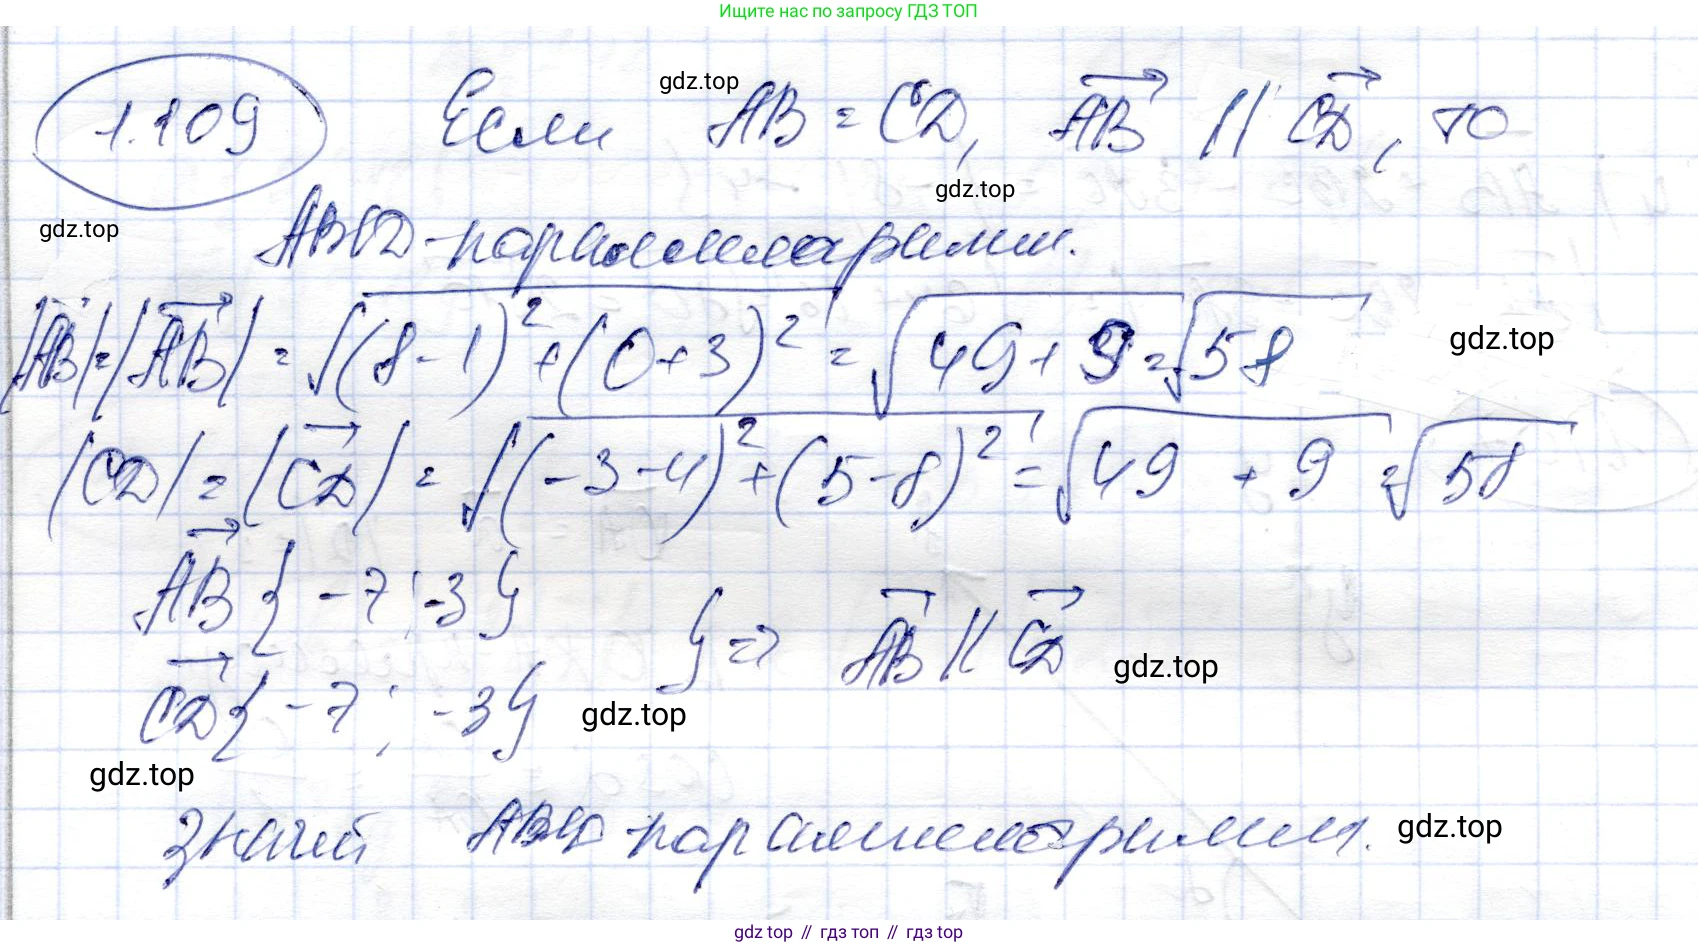 Ищите нас по запросу ГДЗ ТОП
1.109 Если AB = CD, AB || CD, то
gdz.top
gdz.top
gdz.top
ABCD - параллелограмм.
|AB| = |AB| = √(8-1)² + (0+3)² = √49 + 9 = √58
gdz.top
|CD| = |CD| = √(-3-4)² + (5-8)² = √49 + 9 = √58
AB {-7; -3}
} => AB || CD
gdz.top
CD {-7; -3}
gdz.top
gdz.top
Значит ABCD - параллелограмм.
gdz.top
gdz.top // гдз топ // гдз top